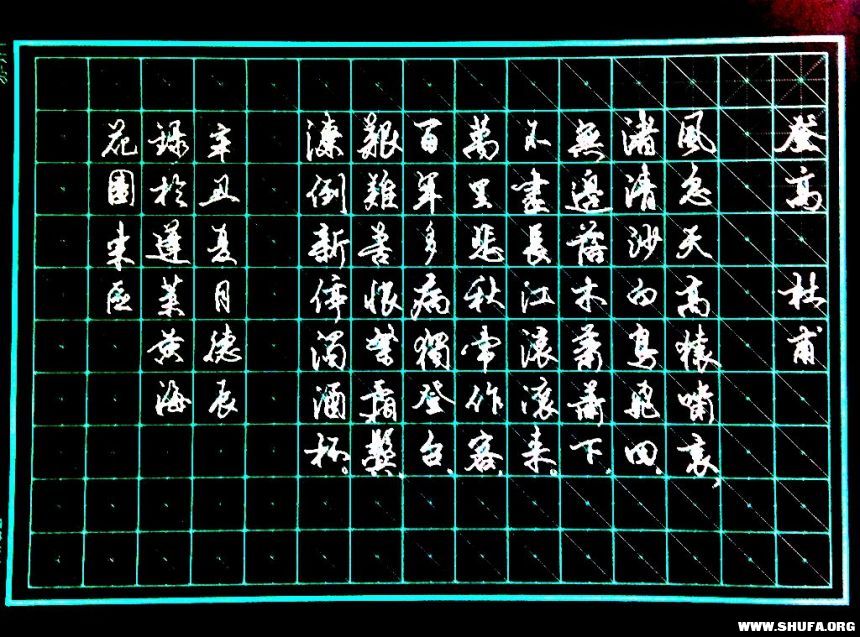 登高 杜甫
風急天高猿嘯哀，
渚清沙白鳥飛回。
無邊落木蕭蕭下，
不盡長江滾滾來。
萬里悲秋常作客，
百年多病獨登台。
艱難苦恨繁霜鬢，
潦倒新停濁酒杯。
辛丑夏月德辰
錄於蓬萊黃海
花園東區
WWW.SHUFA.ORG